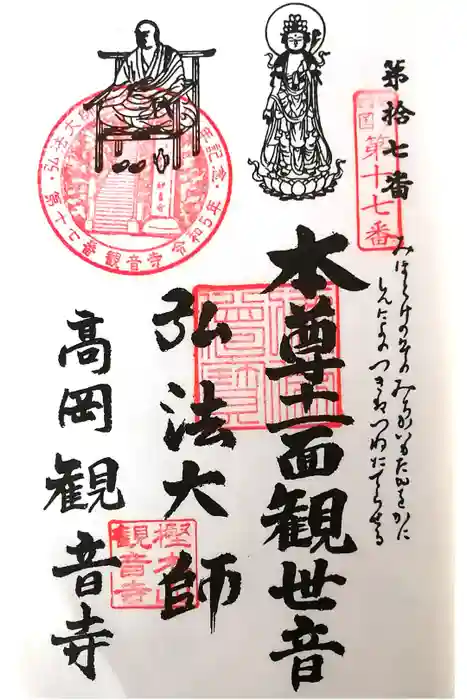 第拾七番
第十七番
みほとけのそのみちかいもたかをかに
しんによのつきはつねにてらせる
本尊十一面観世音
弘法大師
高岡観音寺
弘法大師
記念
第十七番観音寺
令和5年
観音寺